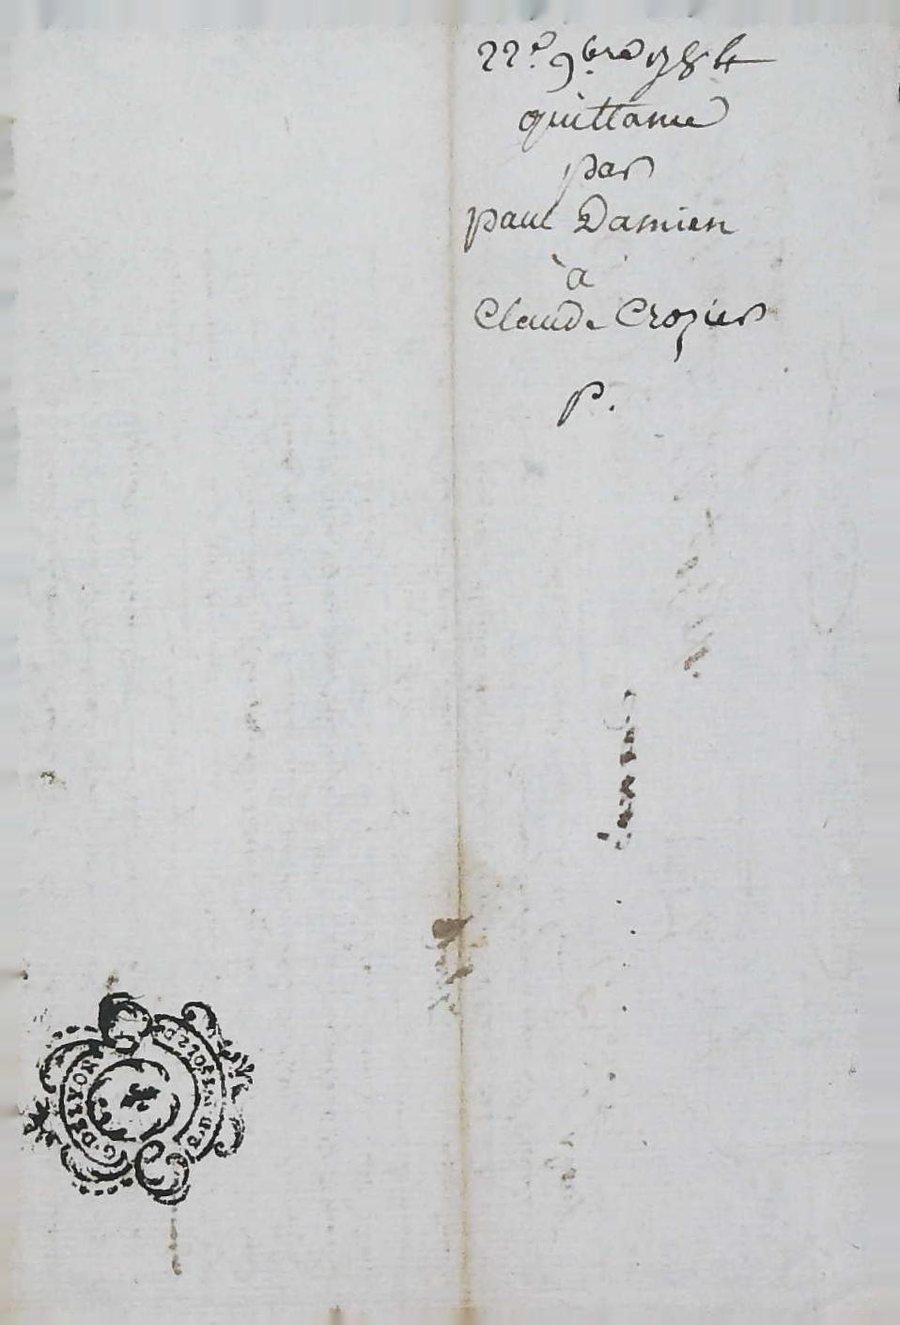 22e. 9bre 1784
quittance
par
paul Damien
à
Claude Crozier
p.
G. DE LYON